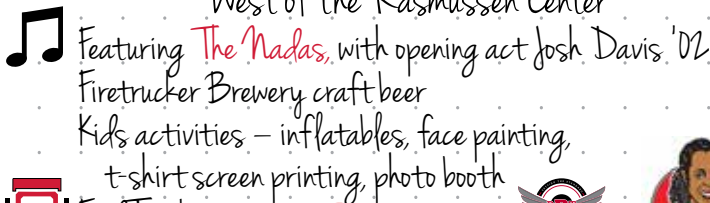 West of the Rasmussen Center
Featuring The Nadas, with opening act Josh Davis '02
Firetrucker Brewery craft beer
Kids activities – inflatables, face painting,
t-shirt screen printing, photo booth